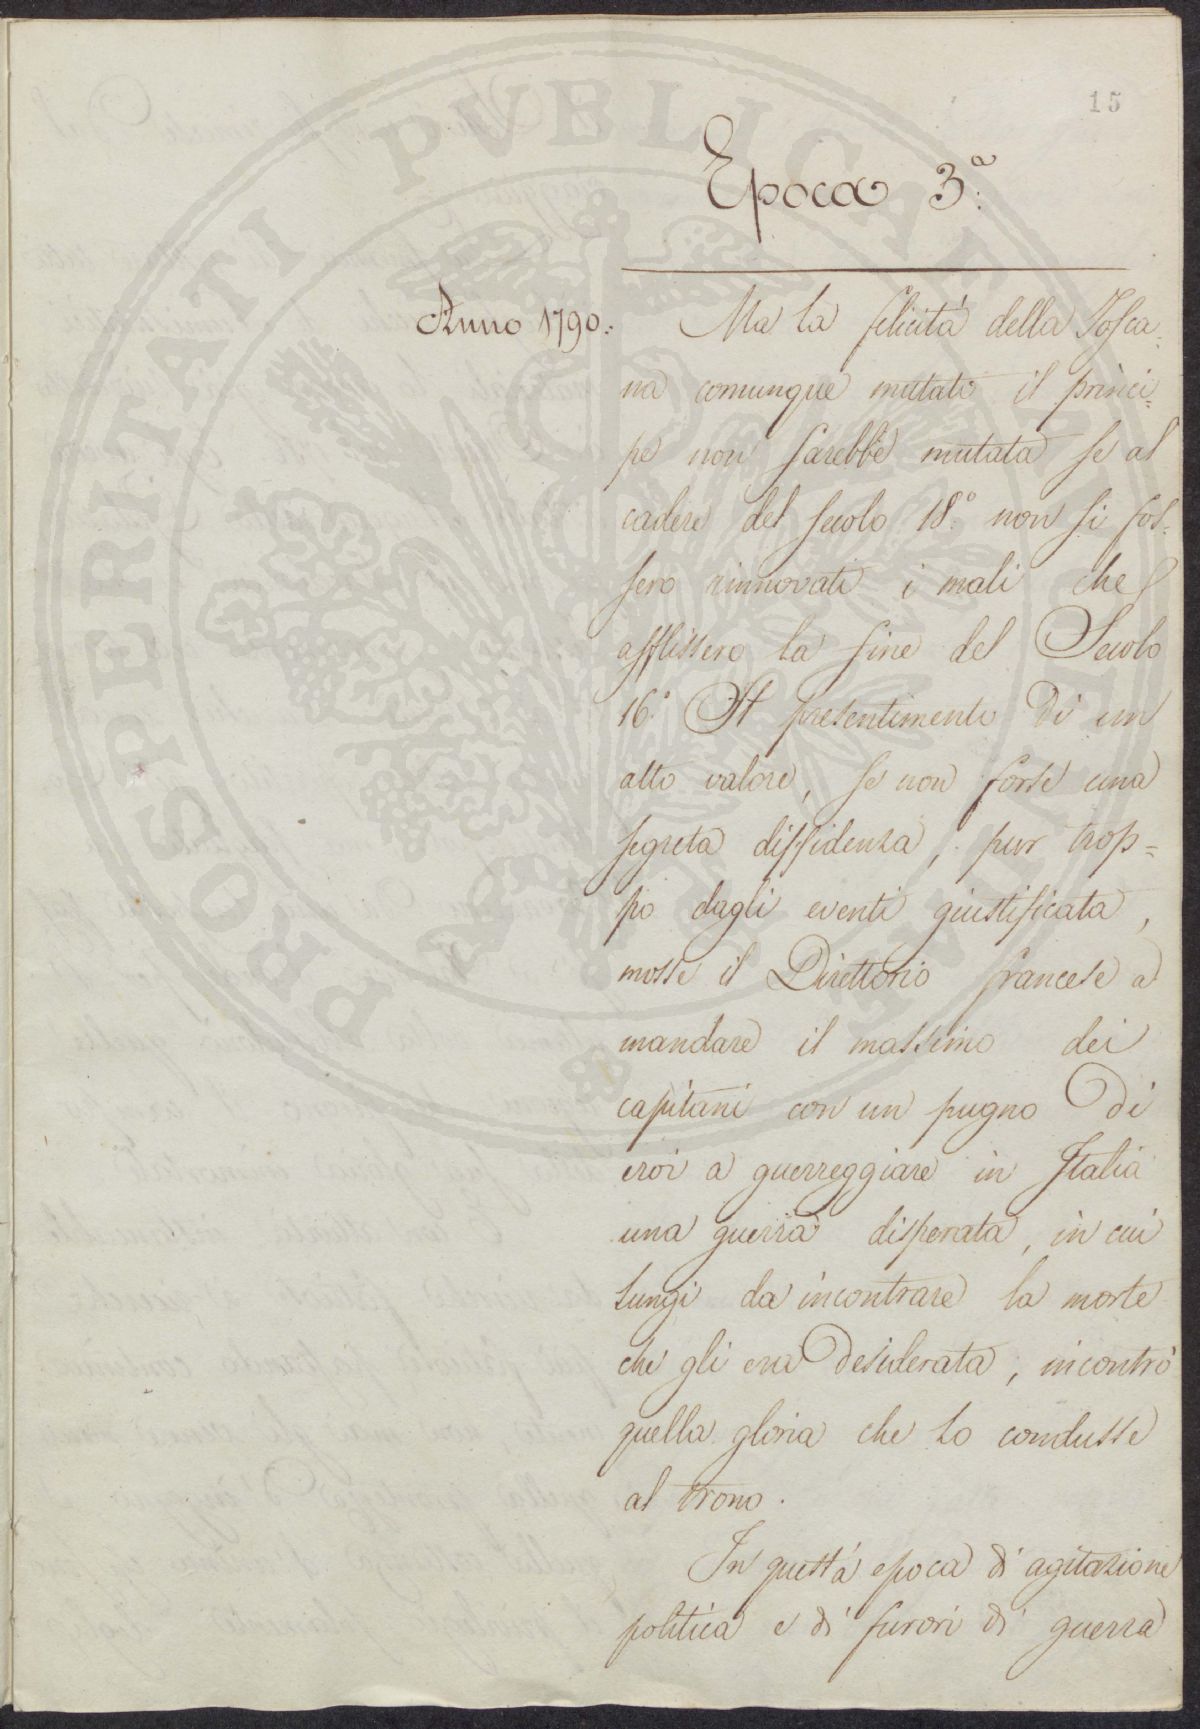 15
Epoca 3.ª
Anno 1790.
Ma la felicità della Tosca-
na comunque mutato il princi-
pe non sarebbe mutata se al
cadere del secolo 18.º non si fos-
sero rinnovati i mali che
afflissero la fine del Secolo
16.º Il presentimento di un
alto valore, se non forse una
segreta diffidenza, pur trop=
po dagli eventi giustificata,
mosse il Direttorio francese a
mandare il massimo dei
capitani con un pugno di
eroi a guerreggiare in Italia
una guerra disperata, in cui
lungi da incontrare la morte
che gli era desiderata, incontrò
quella gloria che lo condusse
al trono.
In questa epoca di agitazione
politica e di furori di guerra
PROSPERITATI PVBLICAE